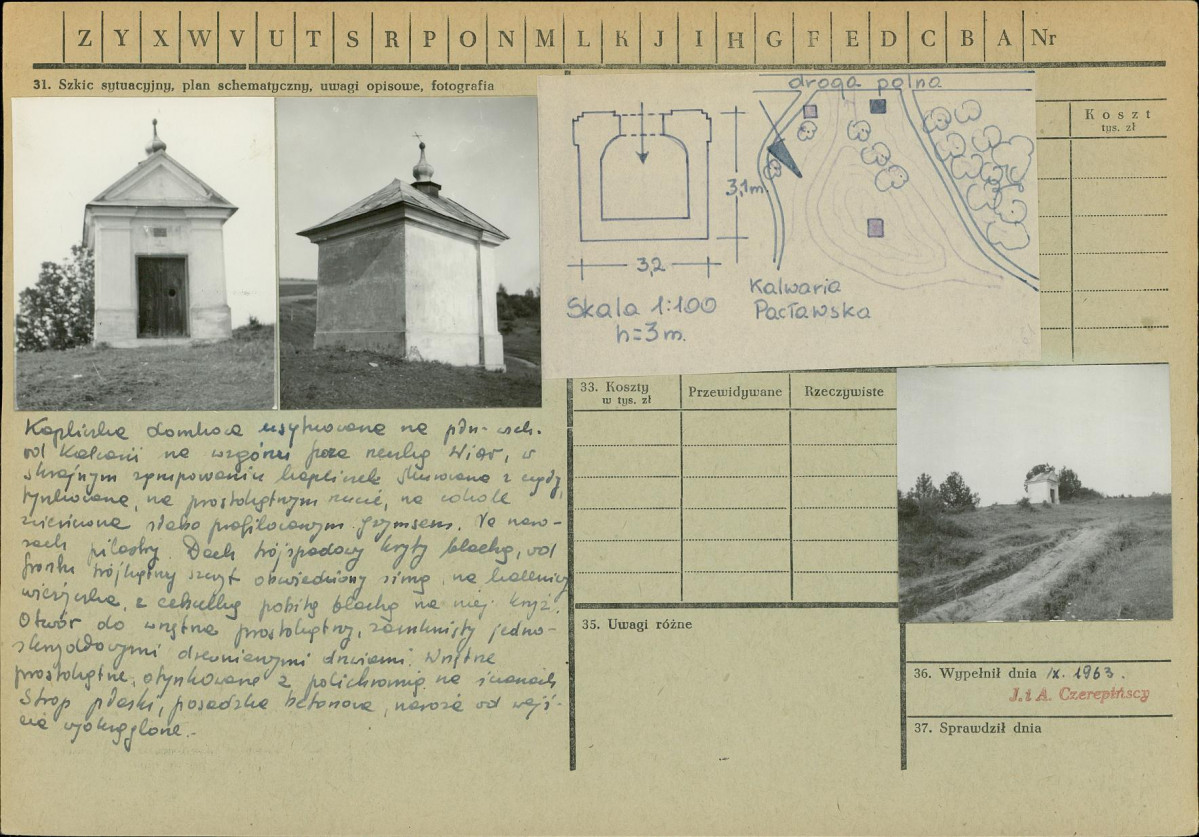 Z Y X W V U T S R P O N M L K J I H G F E D C B A Nr
31. Szkic sytuacyjny, plan schematyczny, uwagi opisowe, fotografia
Koszt
tys. zł
droga polna
3,1m.
3,2
Skala 1:100
h=3m.
Kalwaria
Pacławska
Kapliczka domkowa usytuowana na płn-wsch.
od Kalwarii na wzgórzu poza rzeką Wiar, w
skrajnym zgrupowaniu kaplic. Murowana z cegły,
tynkowana, na prostokątnym rzucie, na cokole
zwieńczona słabo profilowanym gzymsem. Na naro-
żach pilastry. Dach trójspadowy kryty blachą, od
frontu trójkątny szczyt obwiedziony simą, na kalenicy
wieżyczka, z cebulką pobitą blachą na niej krzyż.
Otwór do wnętrza prostokątny, zamknięty jedno-
skrzydłowymi drewnianymi drzwiami. Wnętrze
prostokątne, otynkowane z polichromią na ścianach
Strop płaski, posadzka betonowa, naroża od wejś-
cia wyokrąglone.-
33. Koszty
w tys. zł
Przewidywane
Rzeczywiste
35. Uwagi różne
36. Wypełnił dnia IX. 1963.
J. i A. Czerepińscy
37. Sprawdził dnia